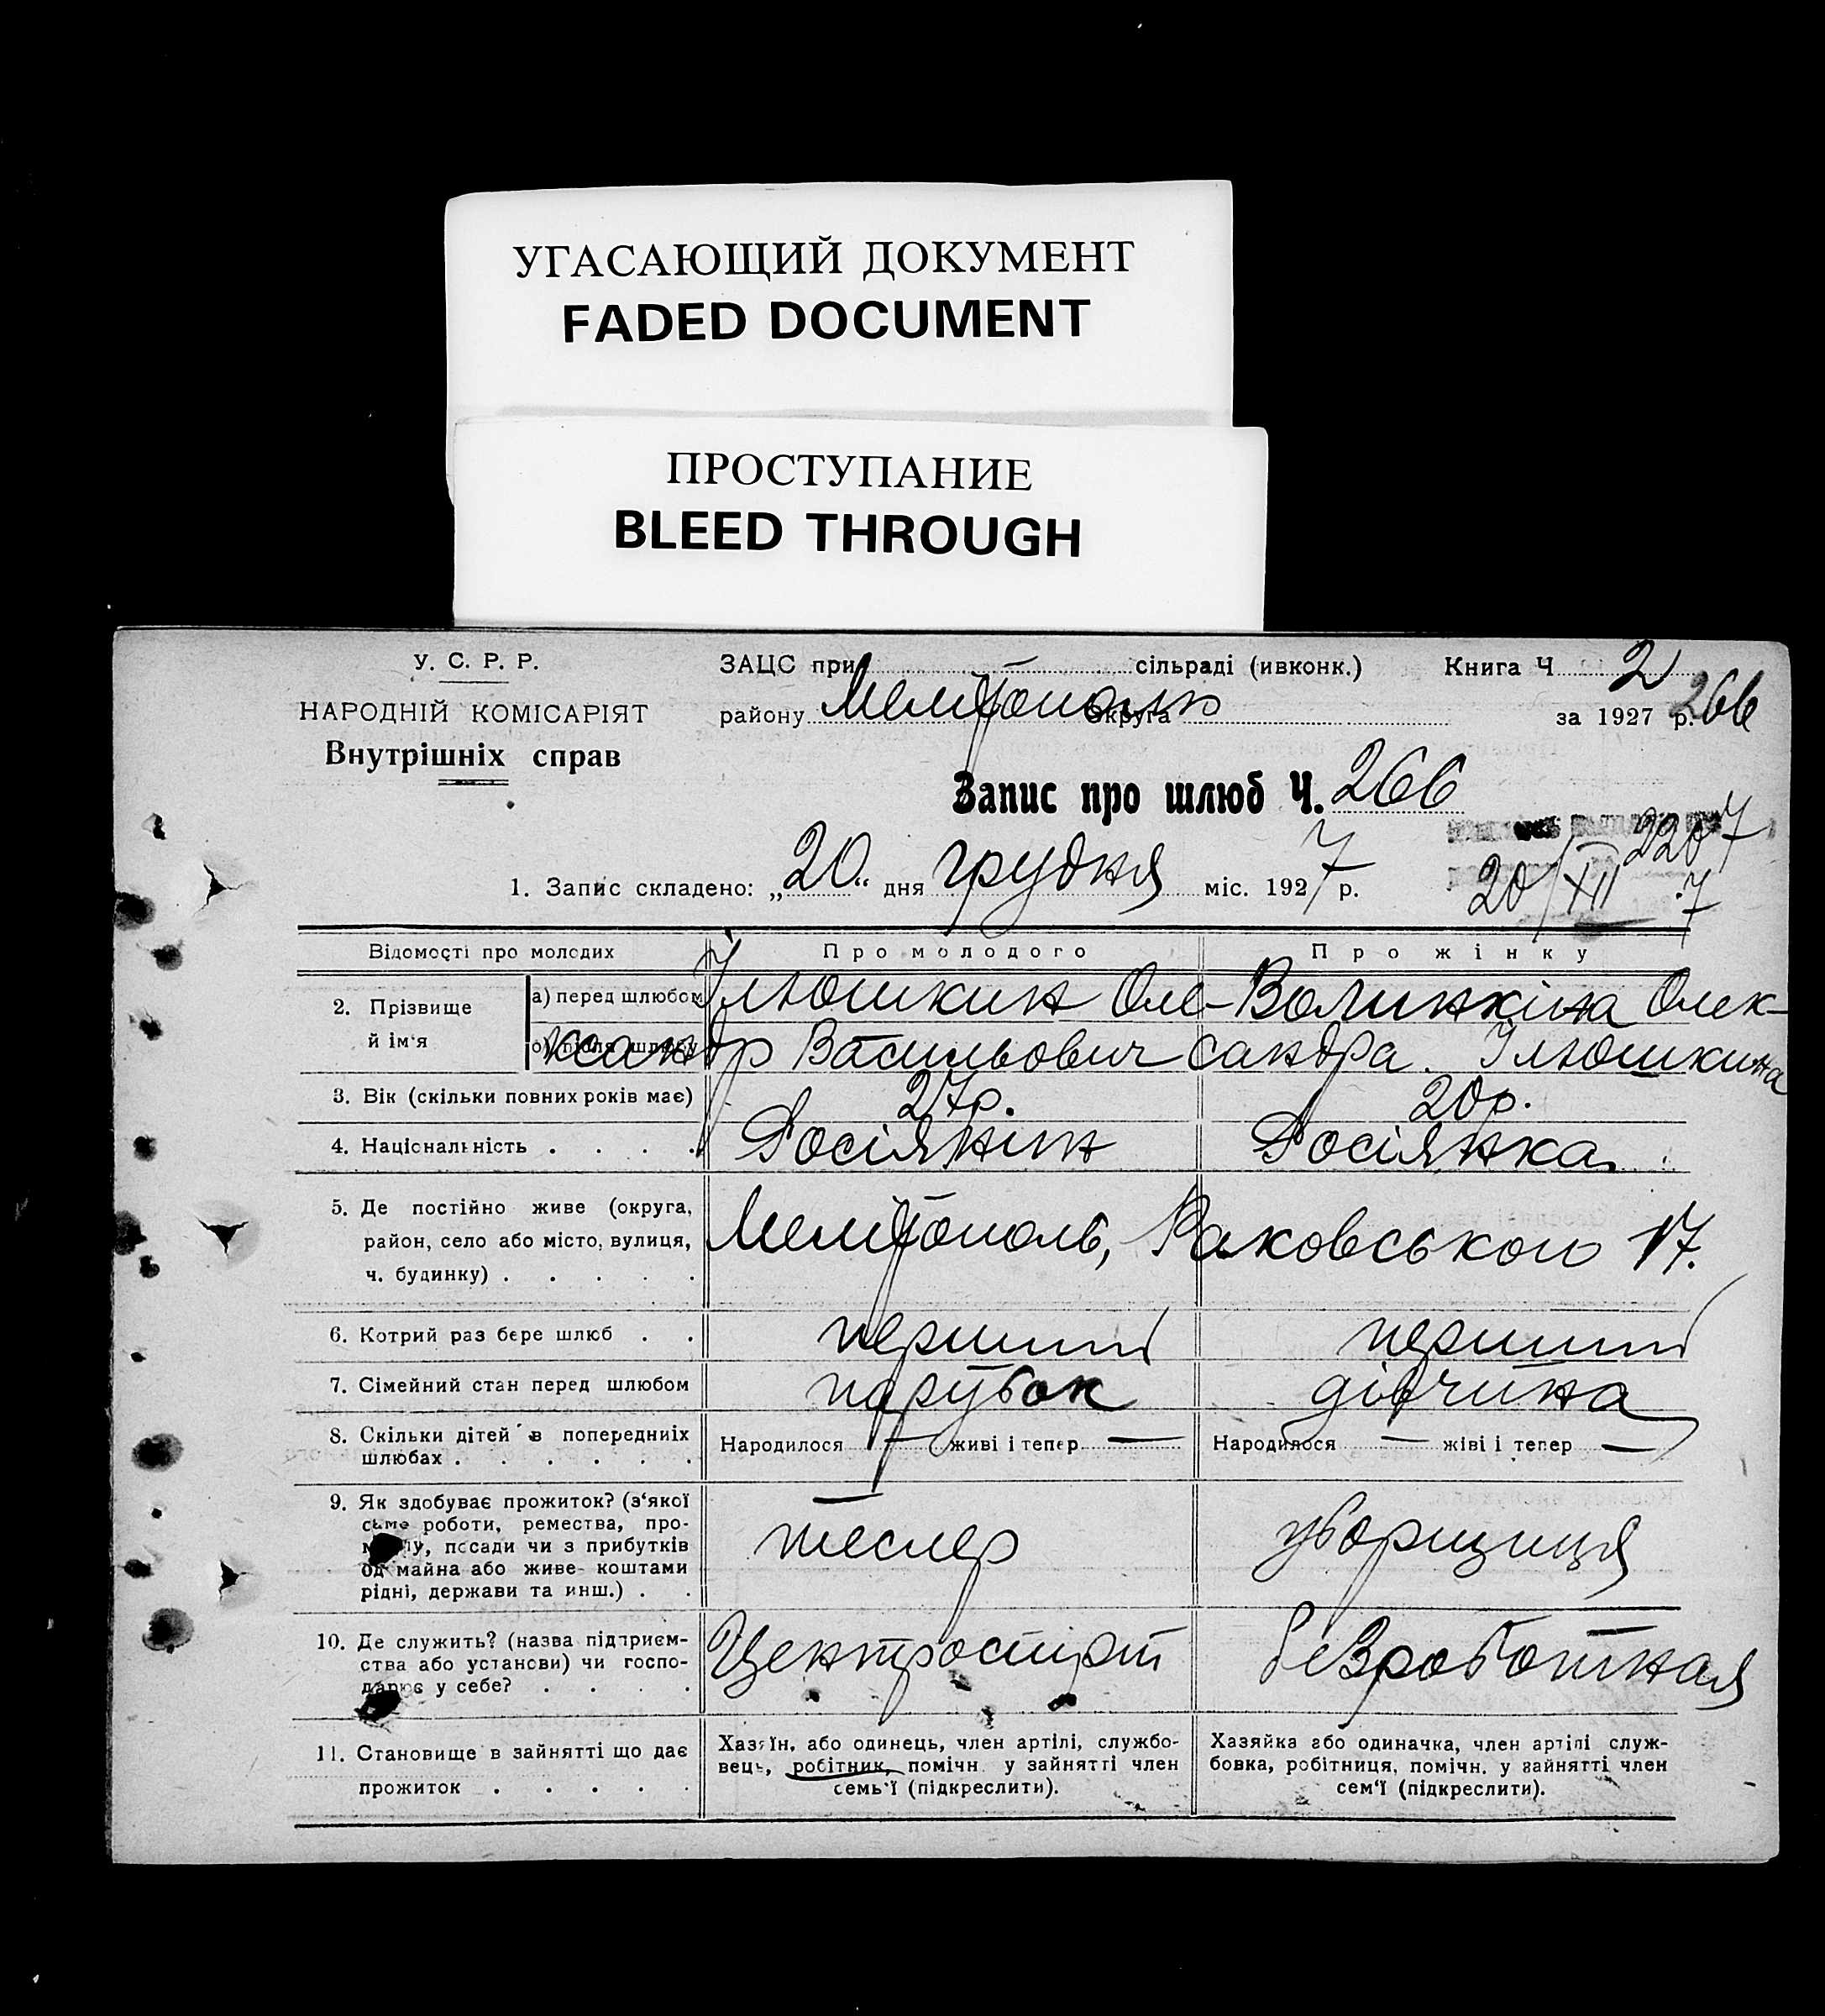 УГАСАЮЩИЙ ДОКУМЕНТ
FADED DOCUMENT
ПРОСТУПАНИЕ
BLEED THROUGH
У. С. Р. Р.
НАРОДНІЙ КОМІСАРІЯТ
Внутрішніх справ
ЗАЦС при сільраді (ивконк.) Книга Ч 2
району Мелітополь Округа за 1927 р. 266
Запис про шлюб Ч. 266
2207
20/XII 7
1. Запис складено: „20“ дня грудня міс. 1927 р.
Відомості про молодих Про молодого Про жінку
2. Прізвище й ім'я
а) перед шлюбом Ілюшкин Оле- Волинкіна Олек-
б) після шлюбу ксандр Васильович сандра. Ілюшкина
3. Вік (скільки повних років має) 27 р. 20 р.
4. Національність . . . . Росіянин Росіянка
5. Де постійно живе (округа,
район, село або місто, вулиця,
ч. будинку) . . . . .
Мелітополь, Раковського 17.
6. Котрий раз бере шлюб . . перший перший
7. Сімейний стан перед шлюбом парубок дівчина
8. Скільки дітей в попередниіх
шлюбах . . . . . .
Народилося — живі і тепер — Народилося — жіві і тепер —
9. Як здобуває прожиток? (з'якої
саме роботи, ремества, про-
мислу, посади чи з прибутків
од майна або живе коштами
рідні, держави та инш.) . .
тесляр уборщиця
10. Де служить? (назва підприєм-
ства або установи) чи госпо-
дарює у себе? . . . .
Центроспірт безроботная
11. Становище в зайнятті що дає
прожиток . . . . .
Хазяїн, або одинець, член артілі, службо-
вець, робітник, помічн. у зайнятті член
семь'ї (підкреслити).
Хазяйка або одиначка, член артілі служ-
бовка, робітниця, помічн. у зайнятті член
сем'ї (підкреслити).